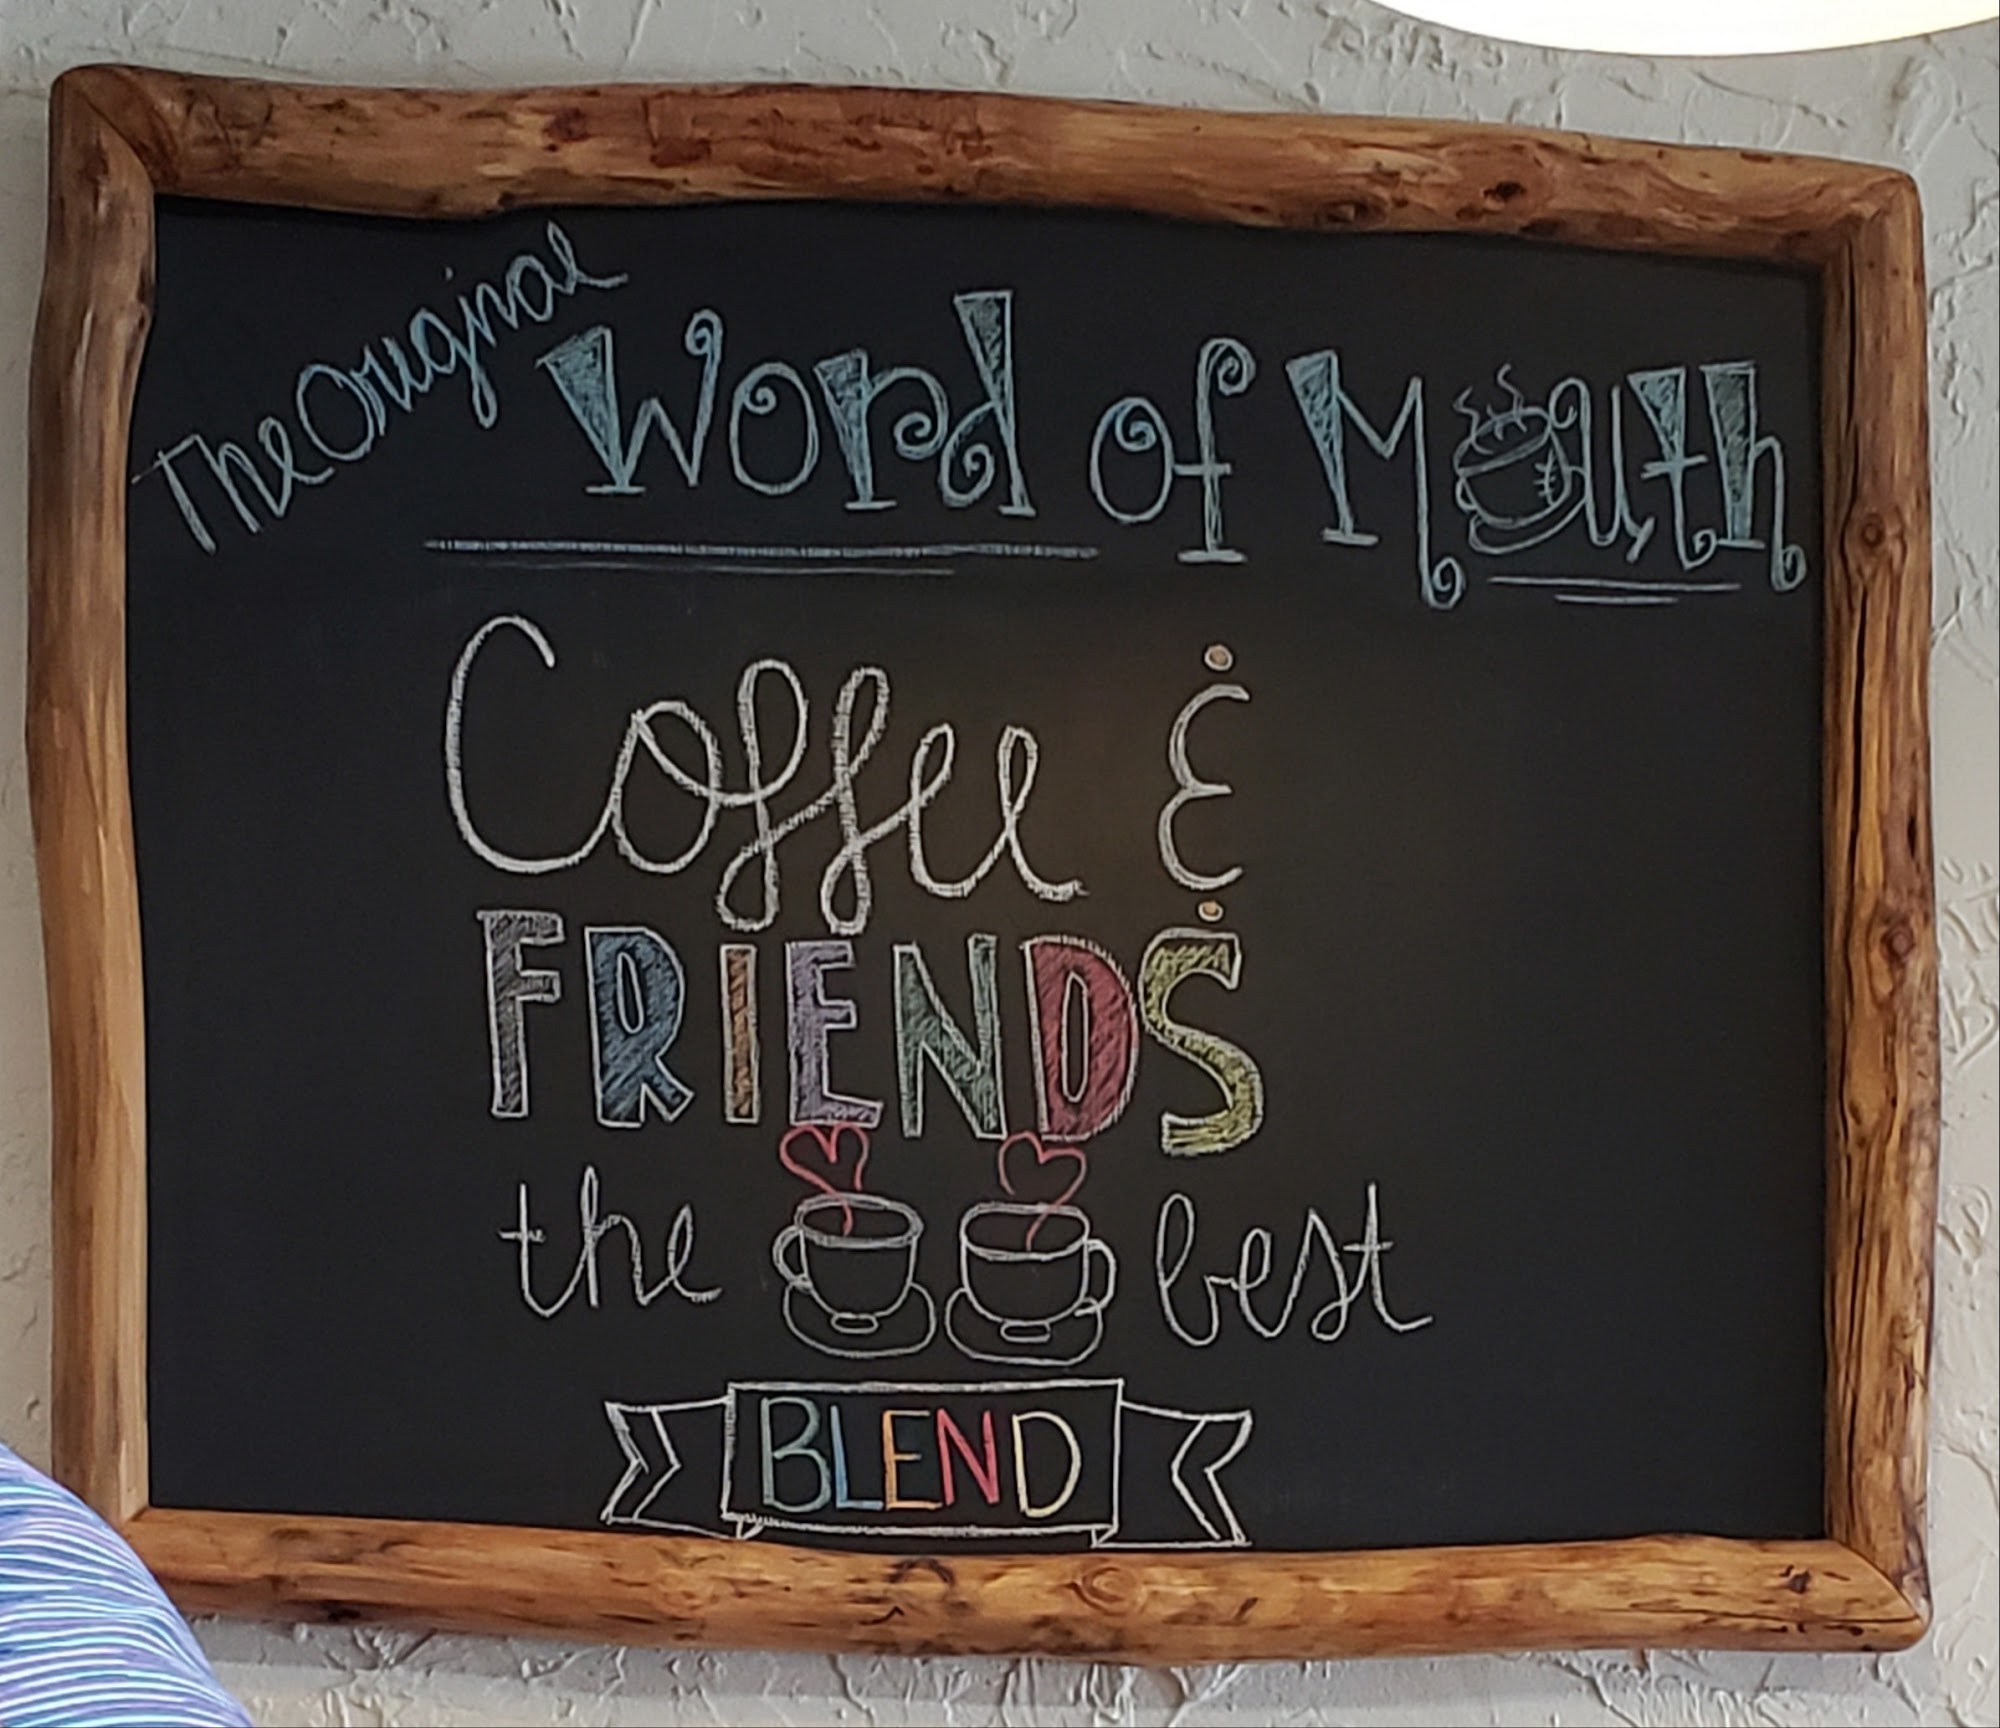 The Original
Word of Mouth
Coffee &
FRIENDS
the best
BLEND